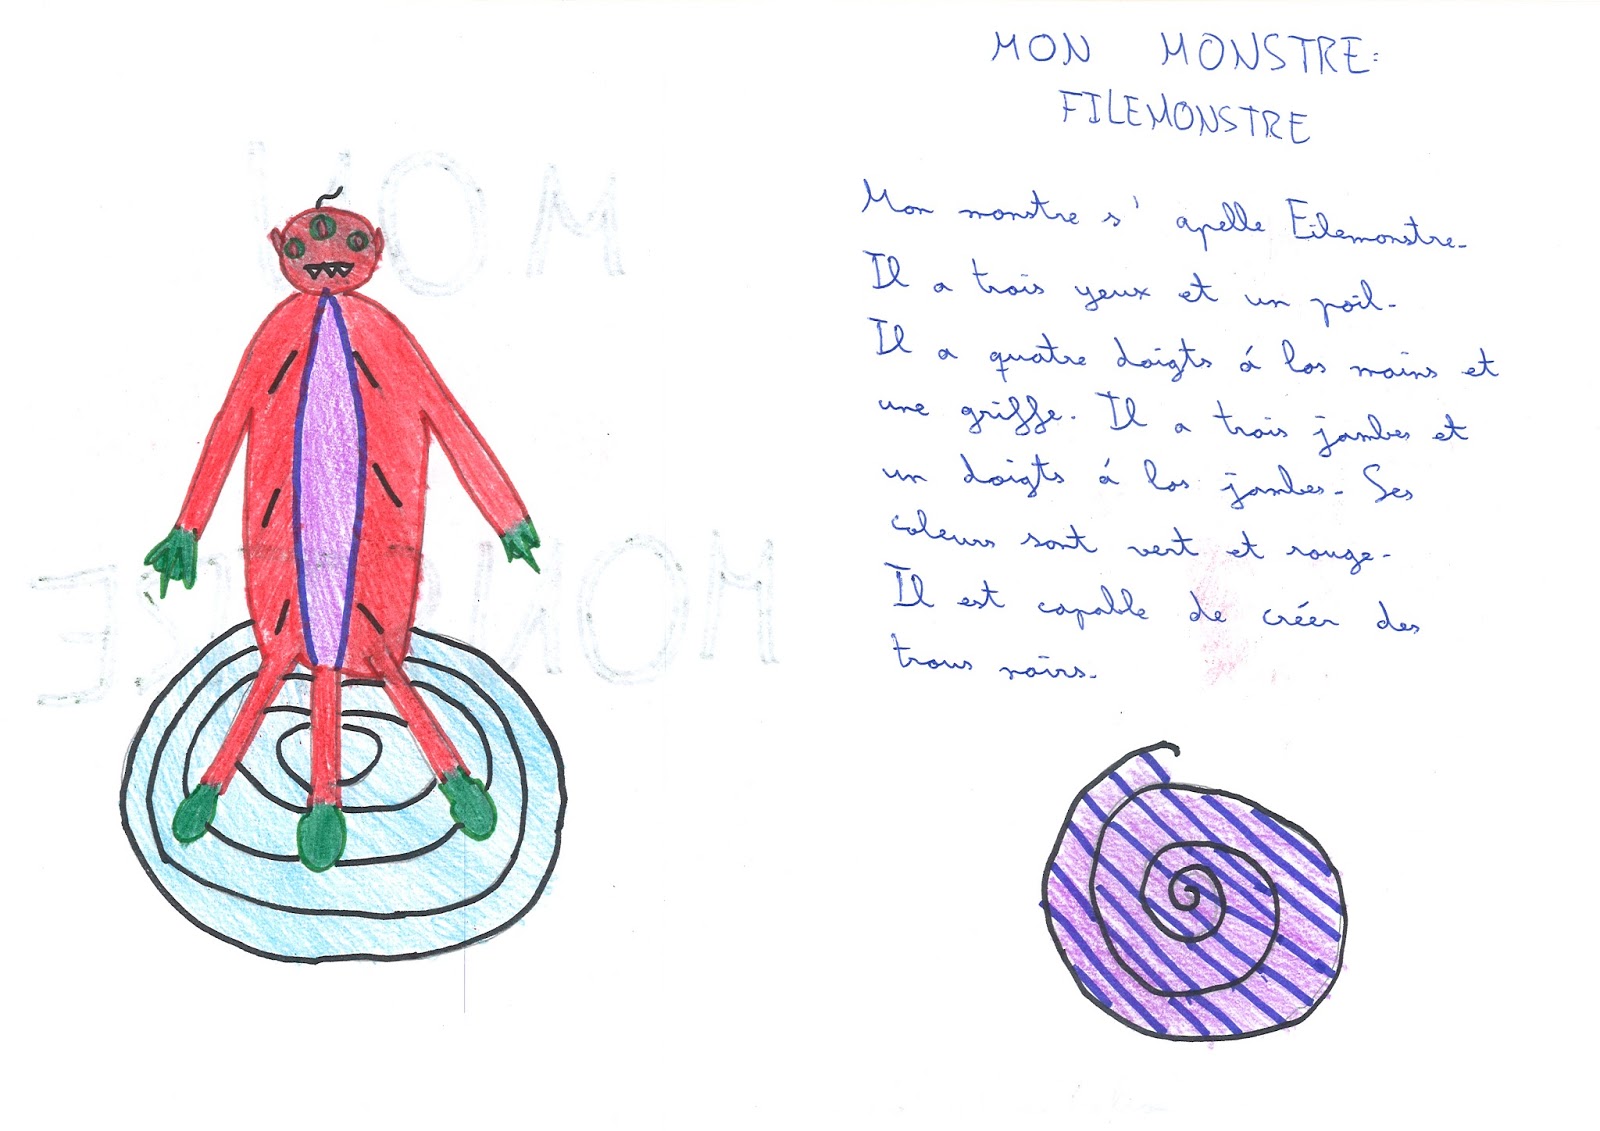 MON MONSTRE:
FILEMONSTRE
Mon monstre s' apelle Filemonstre.
Il a trois yeux et un poil.
Il a quatre doigts á las mains et
une griffe. Il a trois jambes et
un doigts á las jambes. Ses
coleurs sont vert et rouge.
Il est capable de créer des
trous noirs.
MON
MONSTRE